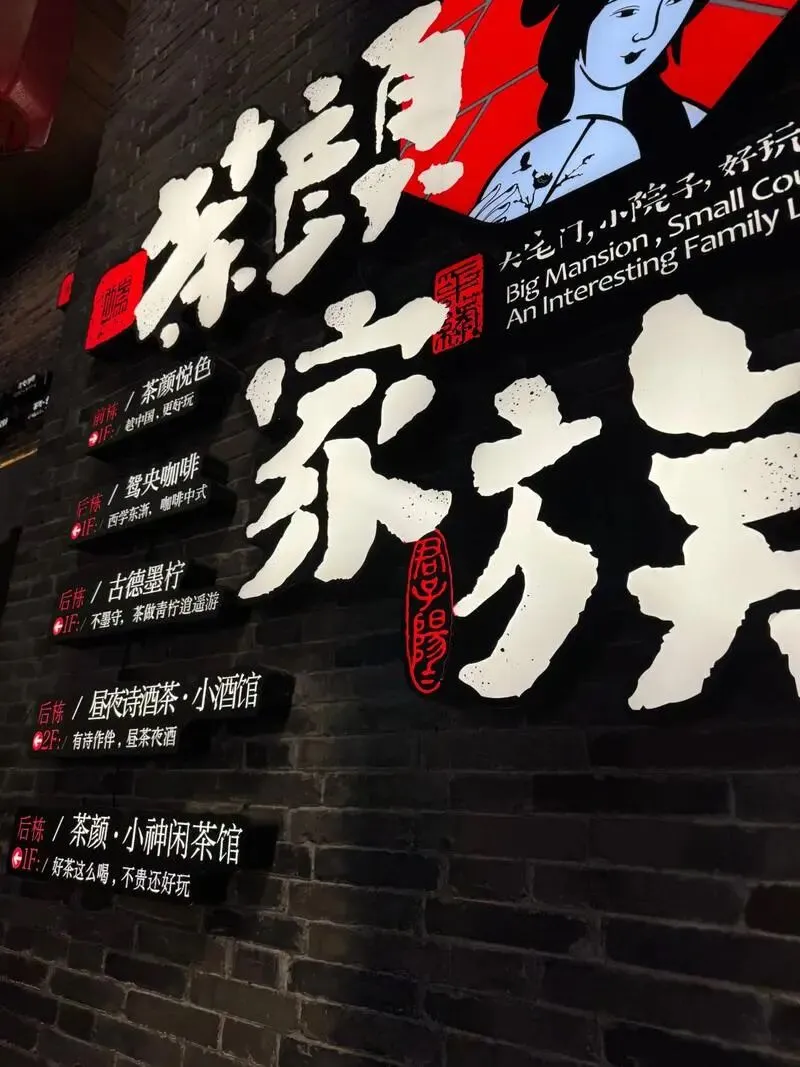 茶颜
家族
大宅门,小院子,好玩
Big Mansion, Small Cou
An Interesting Family L
君子陽
前栋 / 茶颜悦色
1F: / 越中国,更好玩
后栋 / 鸳央咖啡
1F: / 西学东渐,咖啡中式
后栋 / 古德墨柠
1F: / 不墨守,茶做青柠逍遥游
后栋 / 昼夜诗酒茶·小酒馆
2F: / 有诗作伴,昼茶夜酒
后栋 / 茶颜·小神闲茶馆
1F: / 好茶这么喝,不贵还好玩